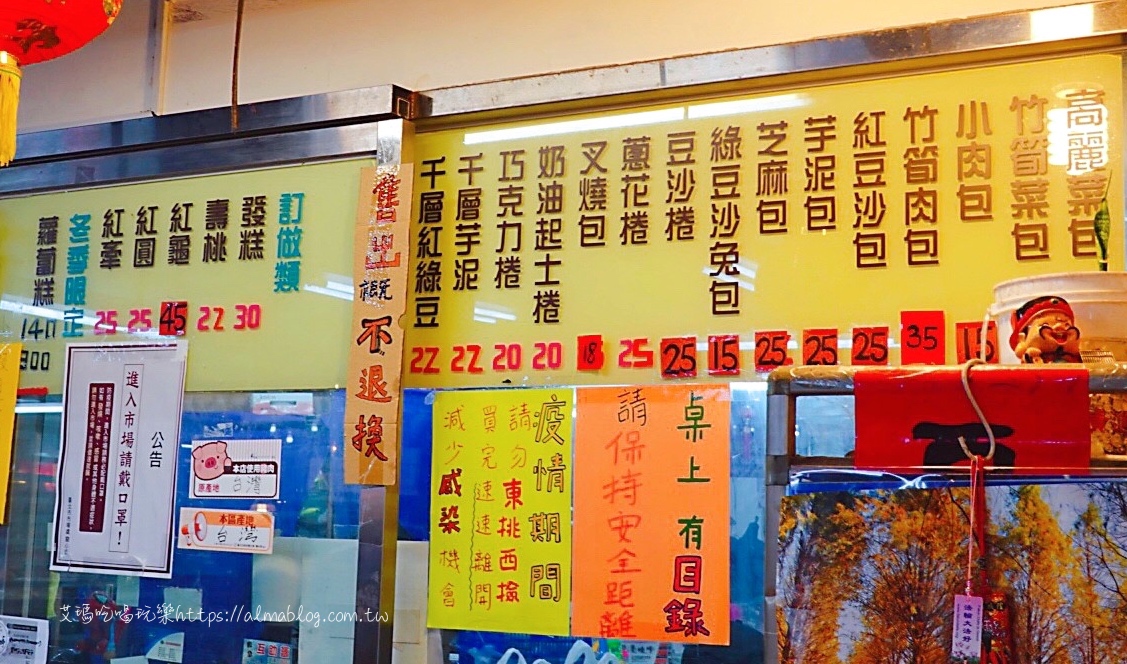 高麗菜包
竹筍菜包
小肉包 15
竹筍肉包 35
紅豆沙包 25
芋泥包 25
芝麻包 25
綠豆沙兔包 15
豆沙捲 25
蔥花捲 25
叉燒包 18
奶油起士捲 20
巧克力捲 20
千層芋泥 22
千層紅綠豆 22
訂做類
發糕 30
壽桃 22
紅龜 45
紅圓 25
紅牽 25
冬季限定
蘿蔔糕
300
售出概不退換
桌上有目錄
請保持安全距離
疫情期間
請勿東挑西撿
買完速速離開
減少感染機會
公告
進入市場請戴口罩!
本店使用豬肉
原產地
台灣
本區產地
台灣
法輪大法好
互助
艾瑪吃喝玩樂https://almablog.com.tw